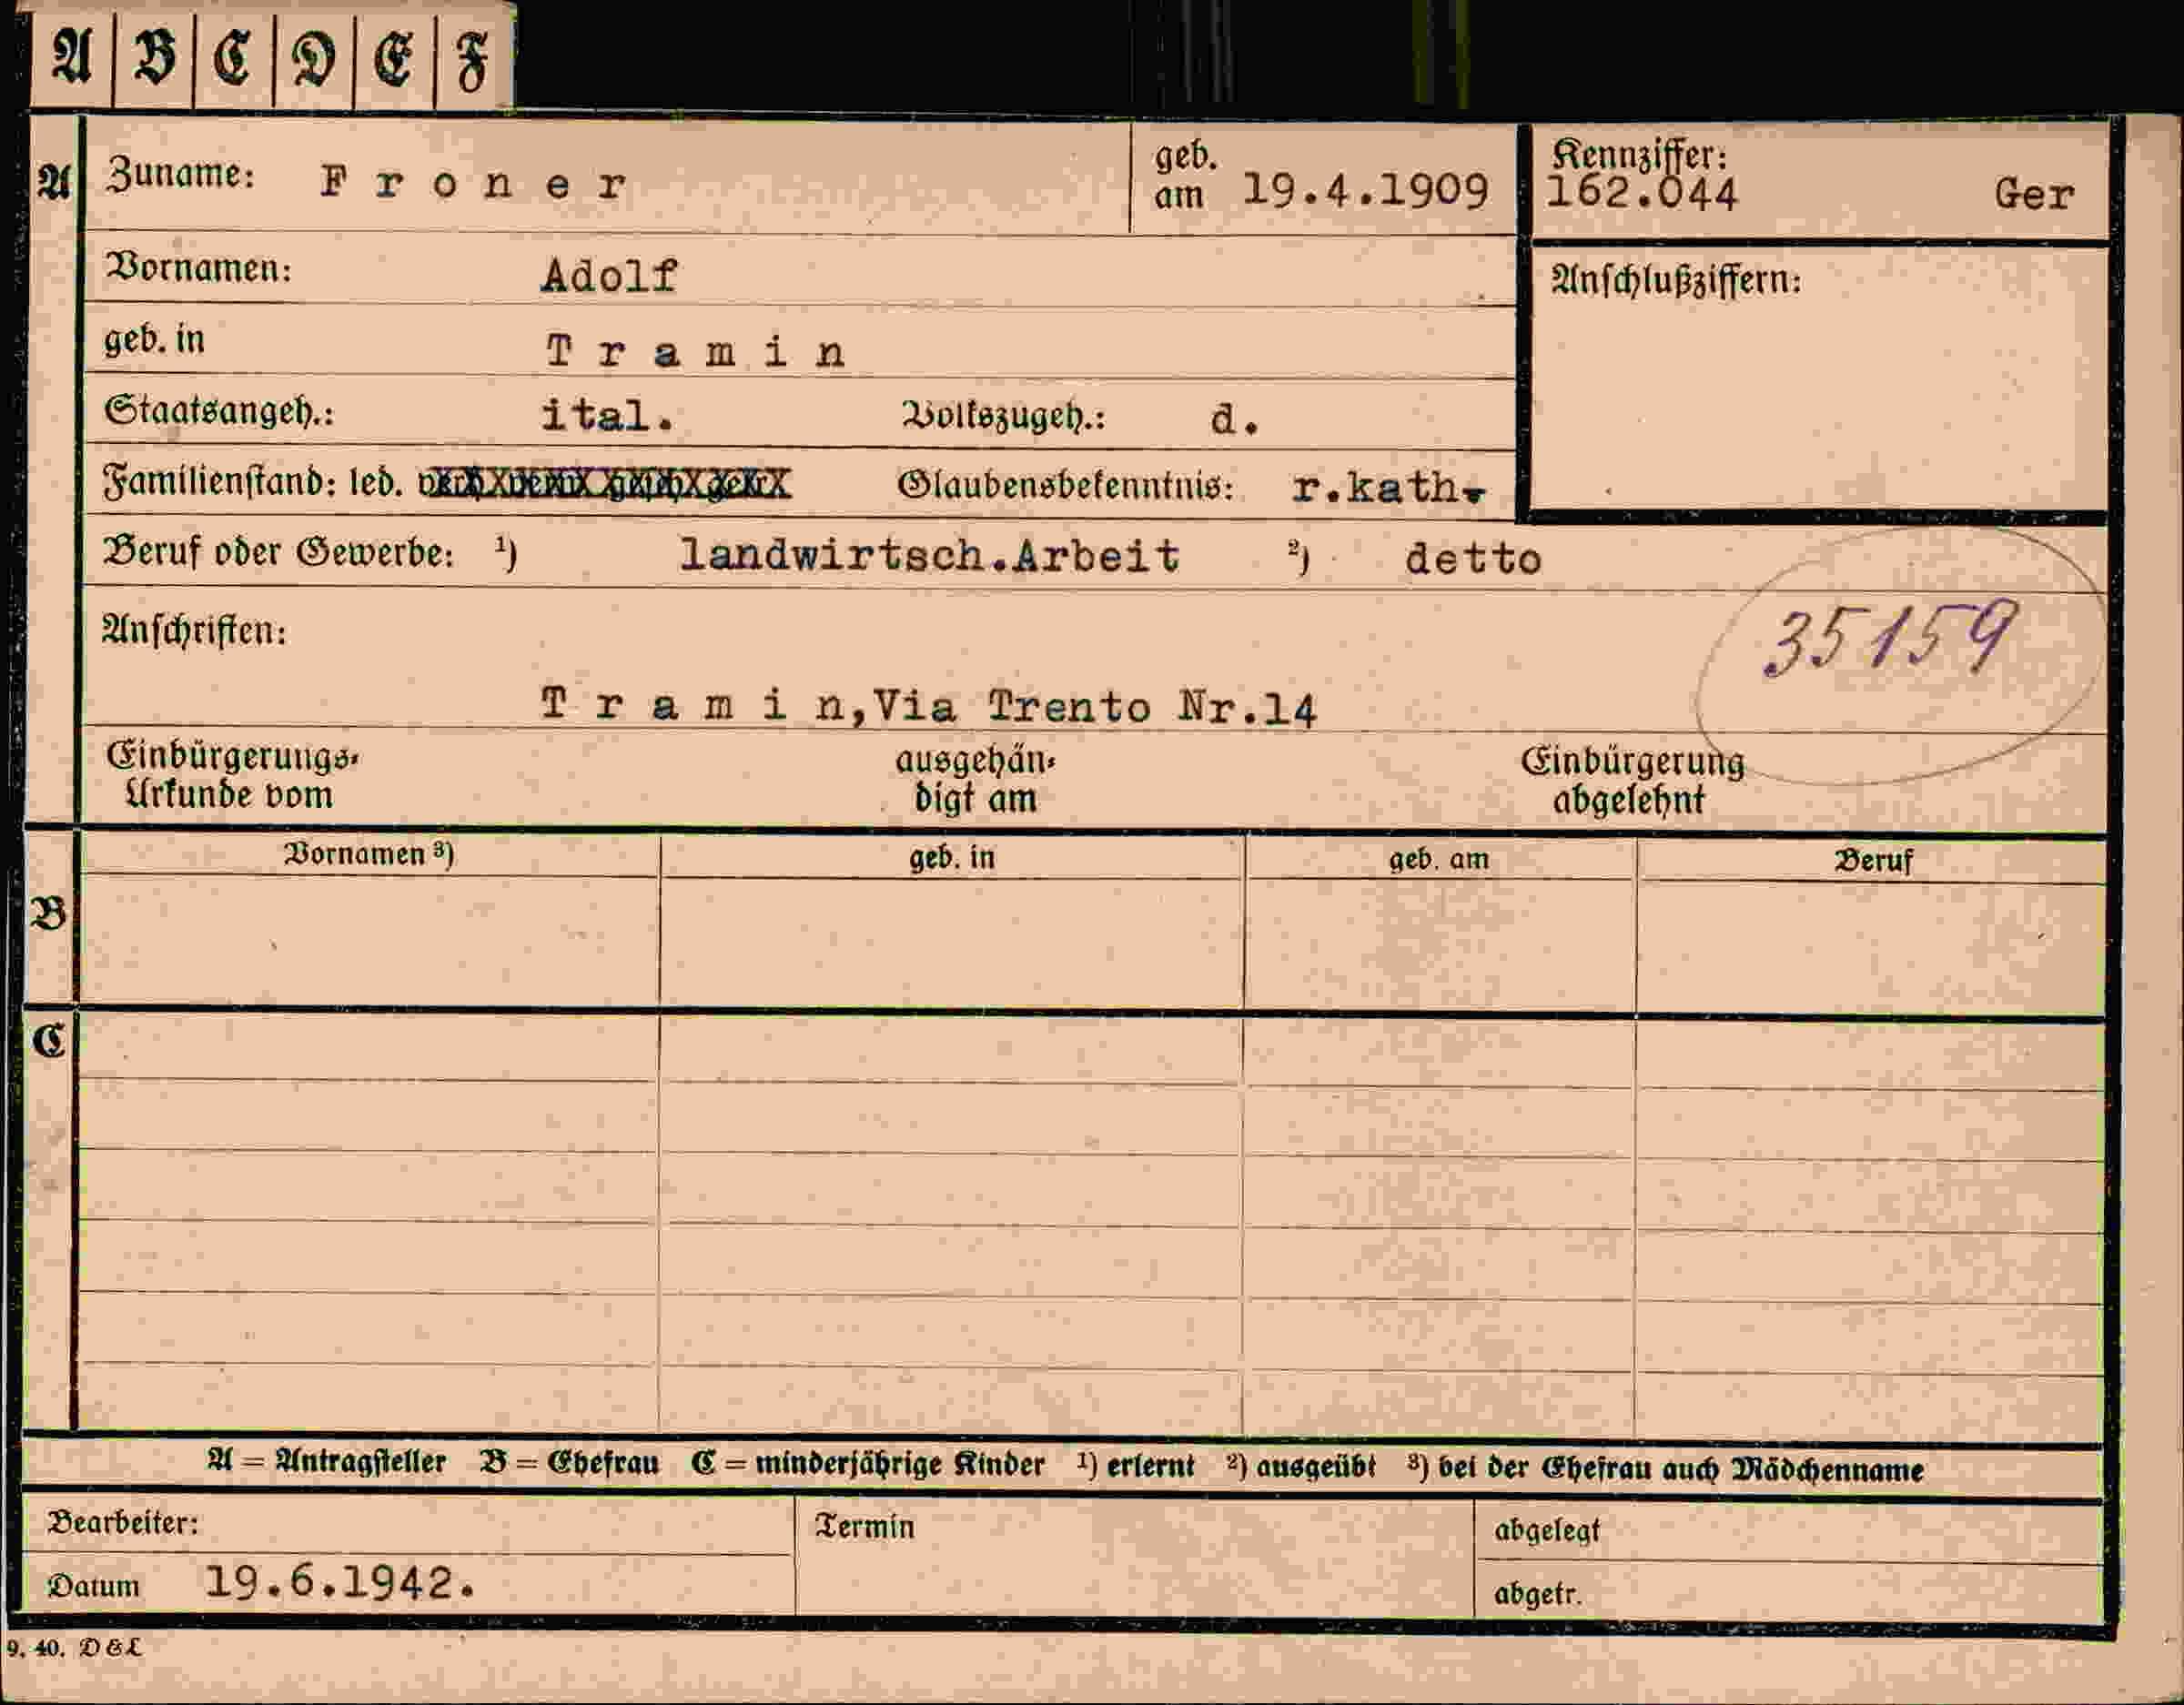 A B C D E F
A Zuname: Froner geb. am 19.4.1909 Kennziffer: 162.044 Ger
Vornamen: Adolf Anschlußziffern:
geb. in Tramin
Staatsangeh.: ital. Volkszugeh.: d.
Familienstand: led. Glaubensbekenntnis: r.kath.
Beruf oder Gewerbe: ¹) landwirtsch.Arbeit ²) detto
Anschriften: 35159
Tramin,Via Trento Nr.14
Einbürgerungs- ausgehän- Einbürgerung
Urkunde vom digt am abgelehnt
Vornamen ³) geb. in geb. am Beruf
B
C
A = Antragsteller B = Ehefrau C = minderjährige Kinder ¹) erlernt ²) ausgeübt ³) bei der Ehefrau auch Mädchenname
Bearbeiter: Termin abgelegt
Datum 19.6.1942. abgetr.
9. 40. D & L